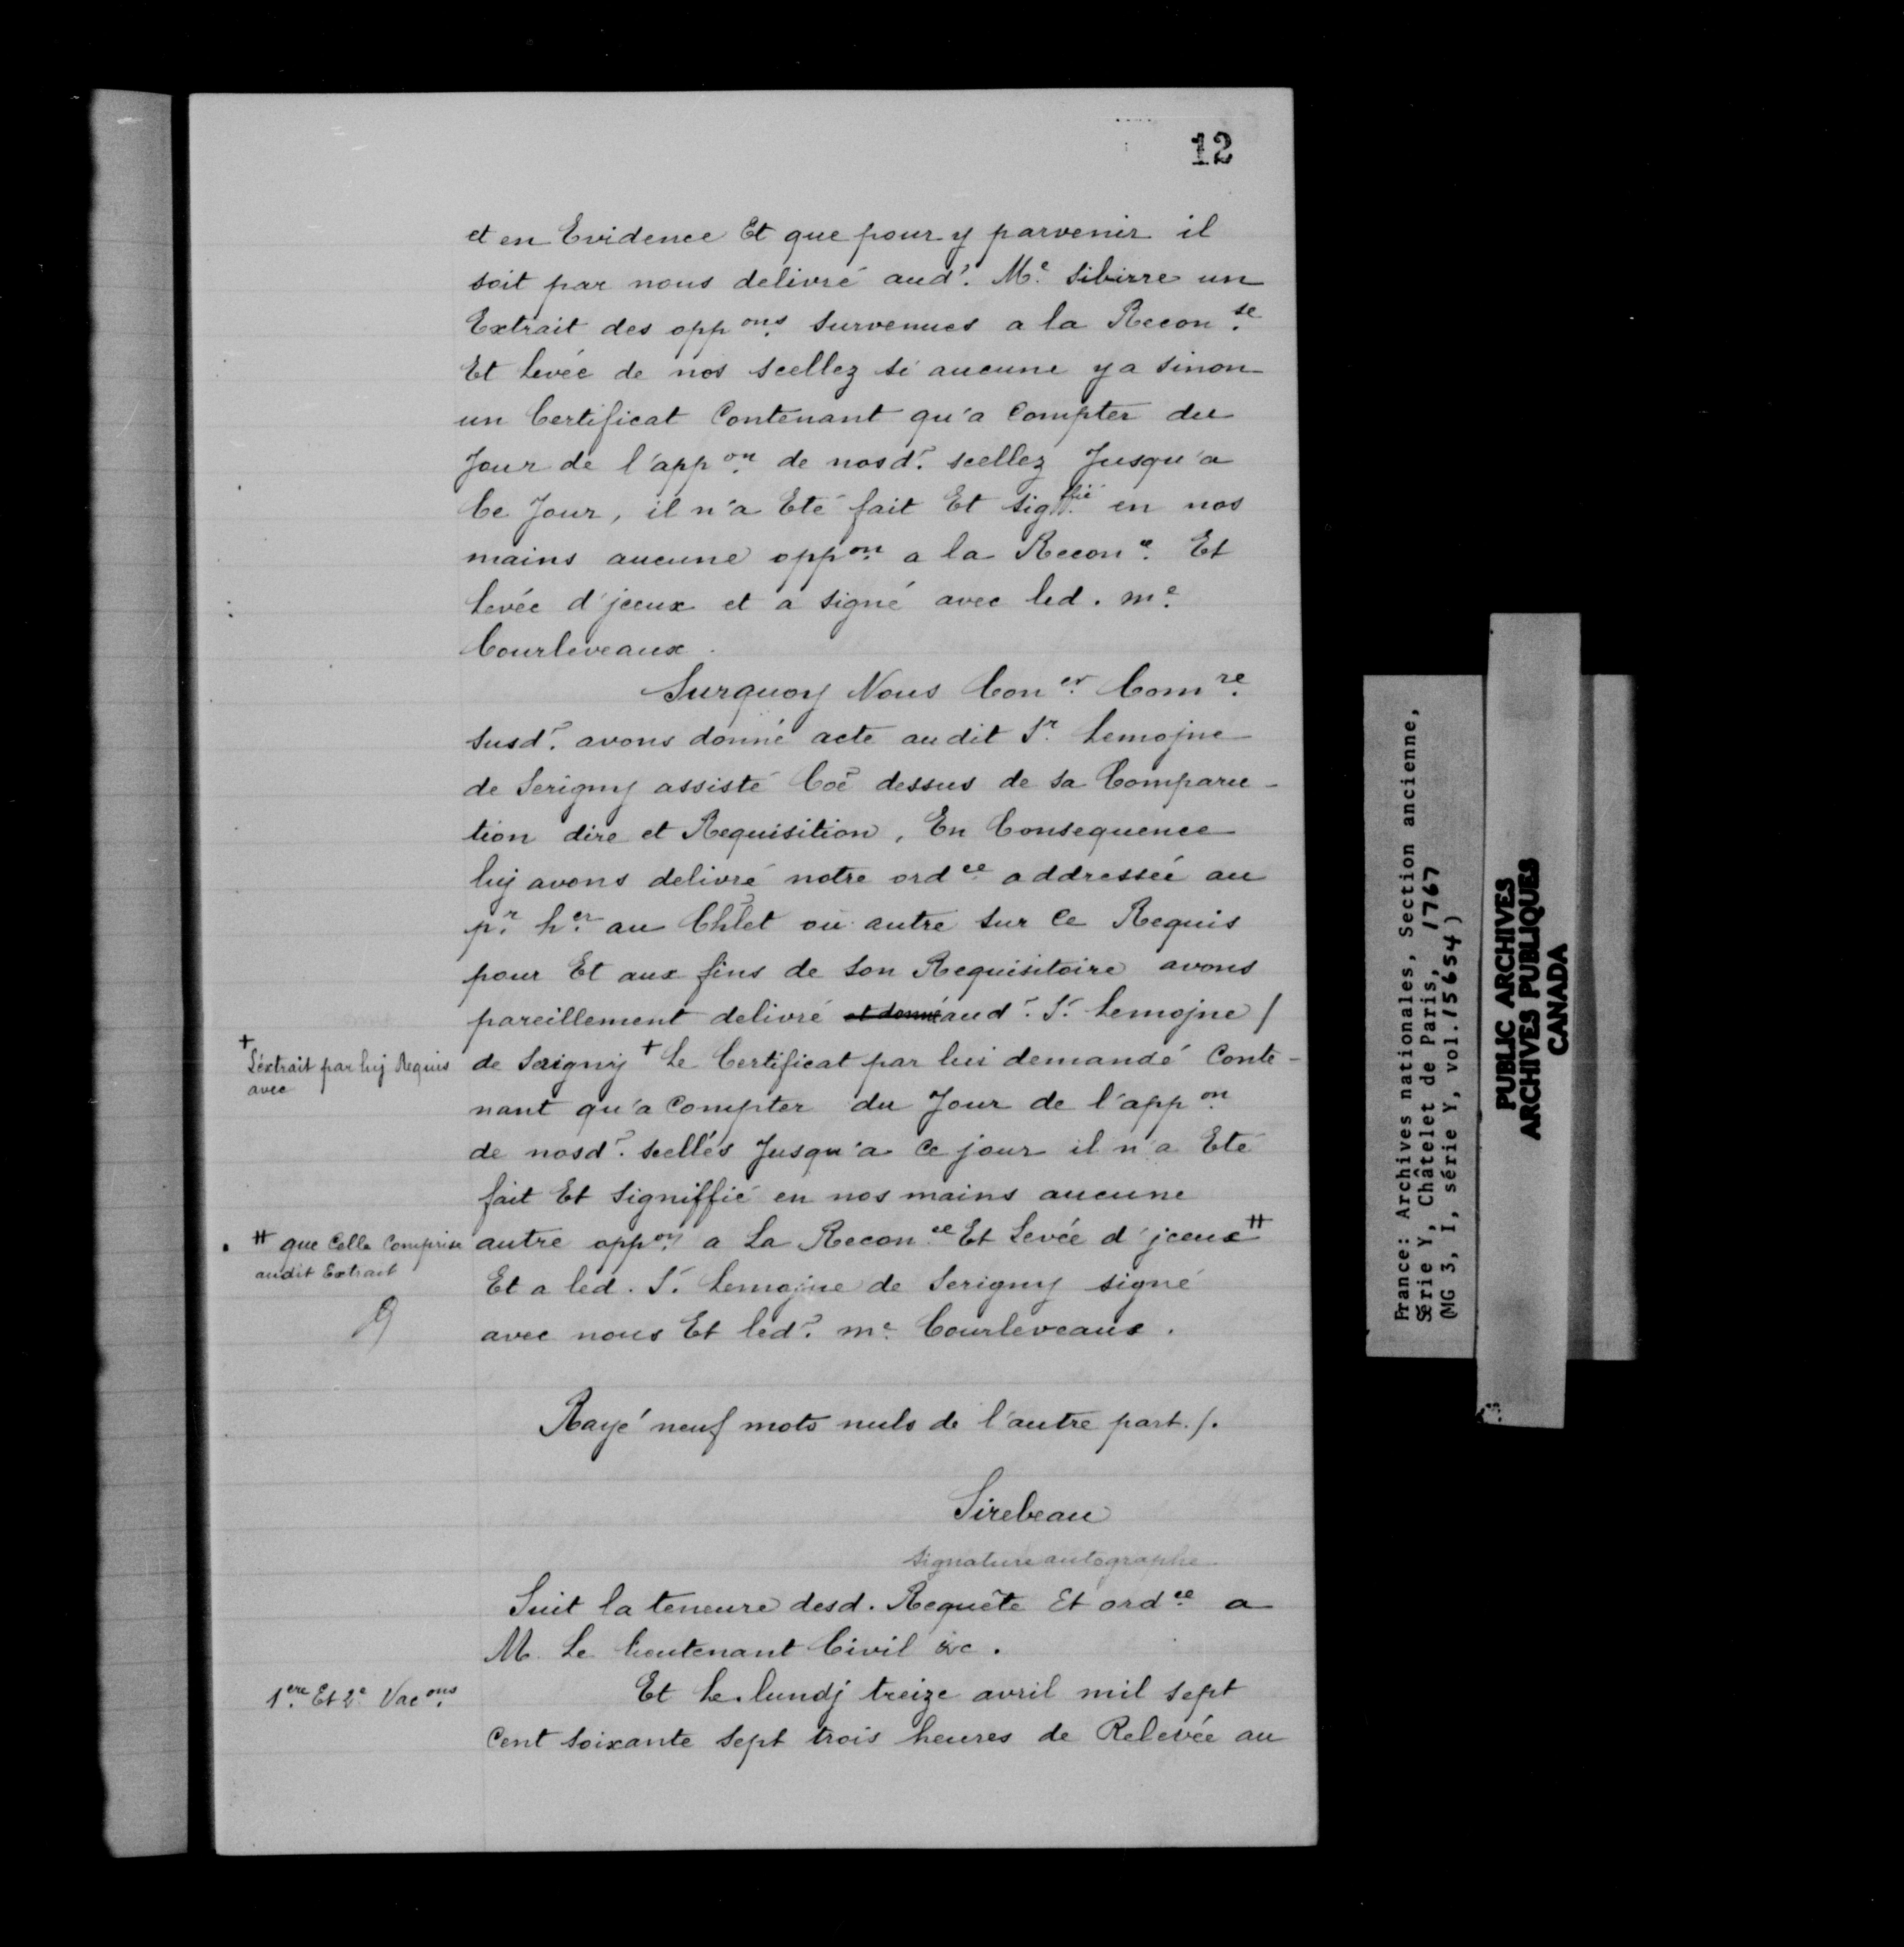 12
et en Evidence Et que pour y parvenir il
soit par nous delivré aud? Me. Sibirre un
Extrait des oppons. survenues a la Reconse.
Et Levée de nos scellez si aucune y a sinon
un Certificat Contenant qu'a Compter du
Jour de l'appon. de nosd? scellez Jusqu'a
Ce Jour, il n'a Eté fait Et sigffié. en nos
mains aucune oppon. a la Reconce. Et
Levée d'jceux et a signé avec led. me.
Courleveaux.
Surquoy Nous Coner. Comre.
susd? avons donné acte audit Sr. Lemojne
de Serigny assisté Coẽ dessus de sa Comparu-
tion dire et Requisition, En Consequence
luj avons delivré notre ordce addressée au
pr. her. au Chlet ou autre sur Ce Requis
pour Et aux fins de Son Requisitoire avons
pareillement delivré et donné aud? S. Lemojne /
+
L'extrait par luj Requis
avec
de Serigny + Le Certificat par lui demandé Conte-
nant qu'a Compter du Jour de l'appon.
de nosd? scellés Jusqu'a Ce jour il n'a Eté
fait Et Signiffié en nos mains aucune
# que Celle Comprise
audit Extrait
autre oppon. a La Reconce. Et Levée d'jceux #
Et a led. S. Lemojne de Serigny signé
avec nous Et led? me. Courleveaux.
Rayé neuf mots nuls de l'autre part./.
Sirebeau
signature autographe
Suit la teneure desd. Requête Et ordce. a
M. Le Lieutenant Civil &c.
1ere. Et 2e Vacons.
Et Le lundj treize avril mil sept
Cent soixante sept trois heures de Relevée au
France: Archives nationales, Section ancienne,
Série Y, Châtelet de Paris, 1767
(MG 3, I, série Y, vol. 15654)
PUBLIC ARCHIVES
ARCHIVES PUBLIQUES
CANADA